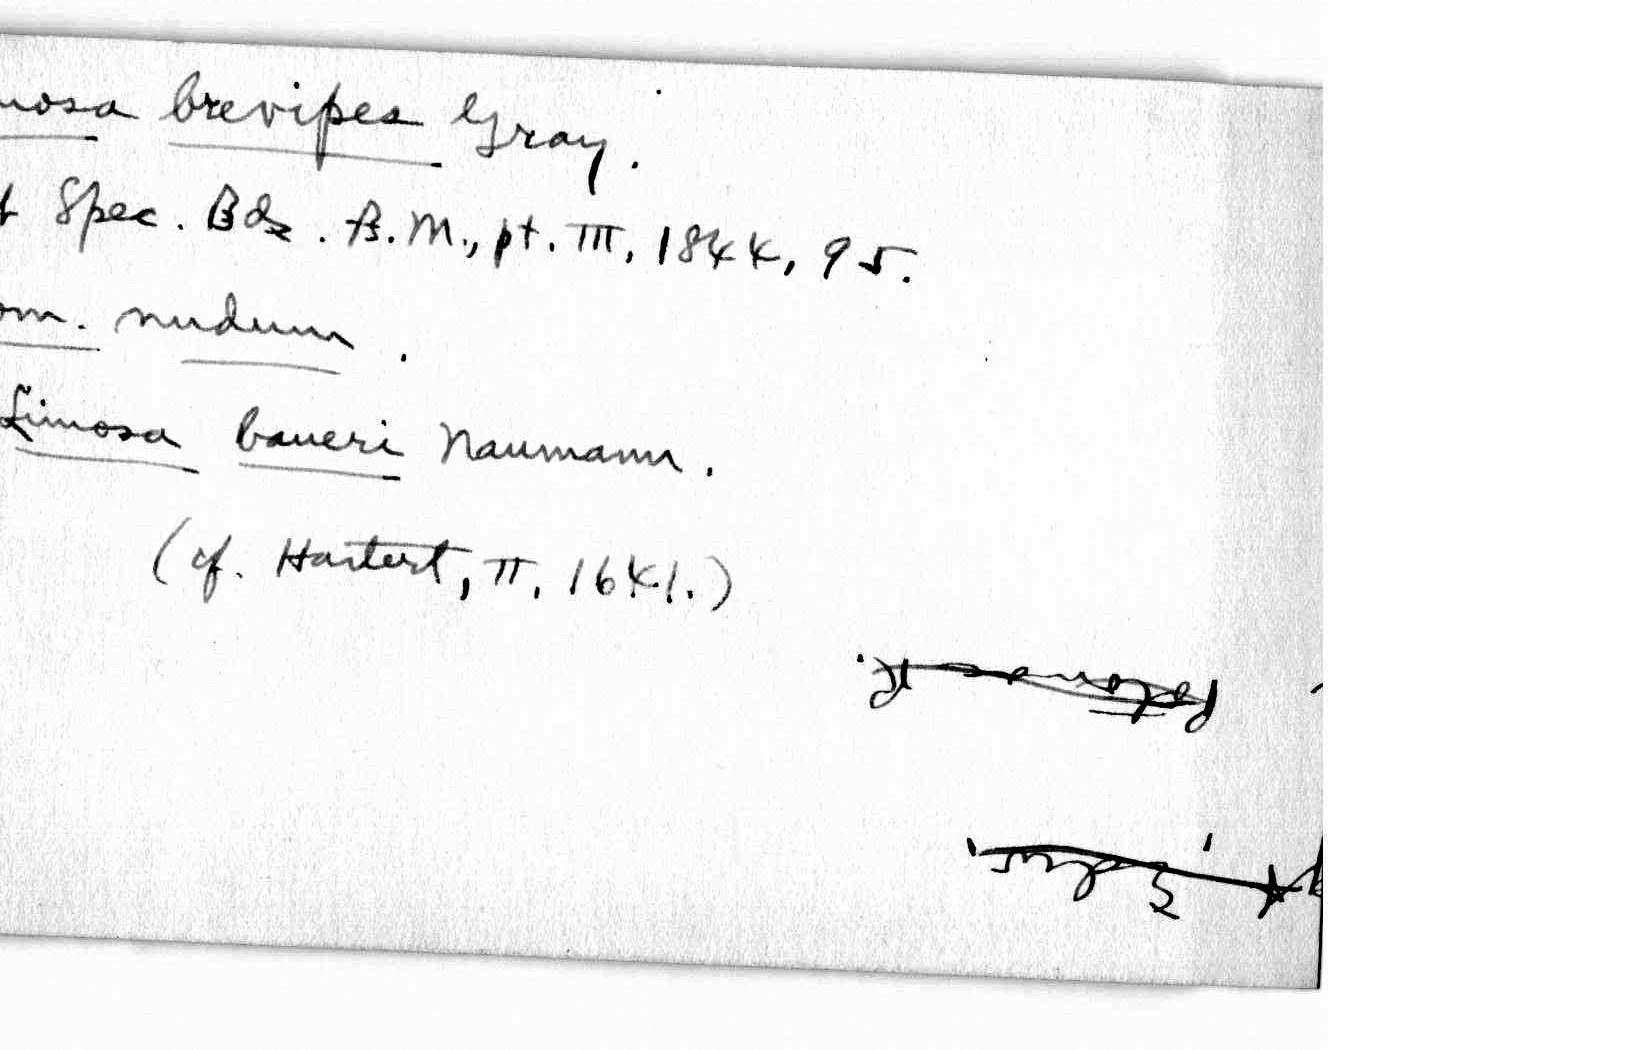 mosa brevipes Gray.
t Spec. Bds. B.M., pt. III, 1844, 95.
om. nudum.
Limosa baueri Naumann.
(cf. Hartert, II, 1641.)